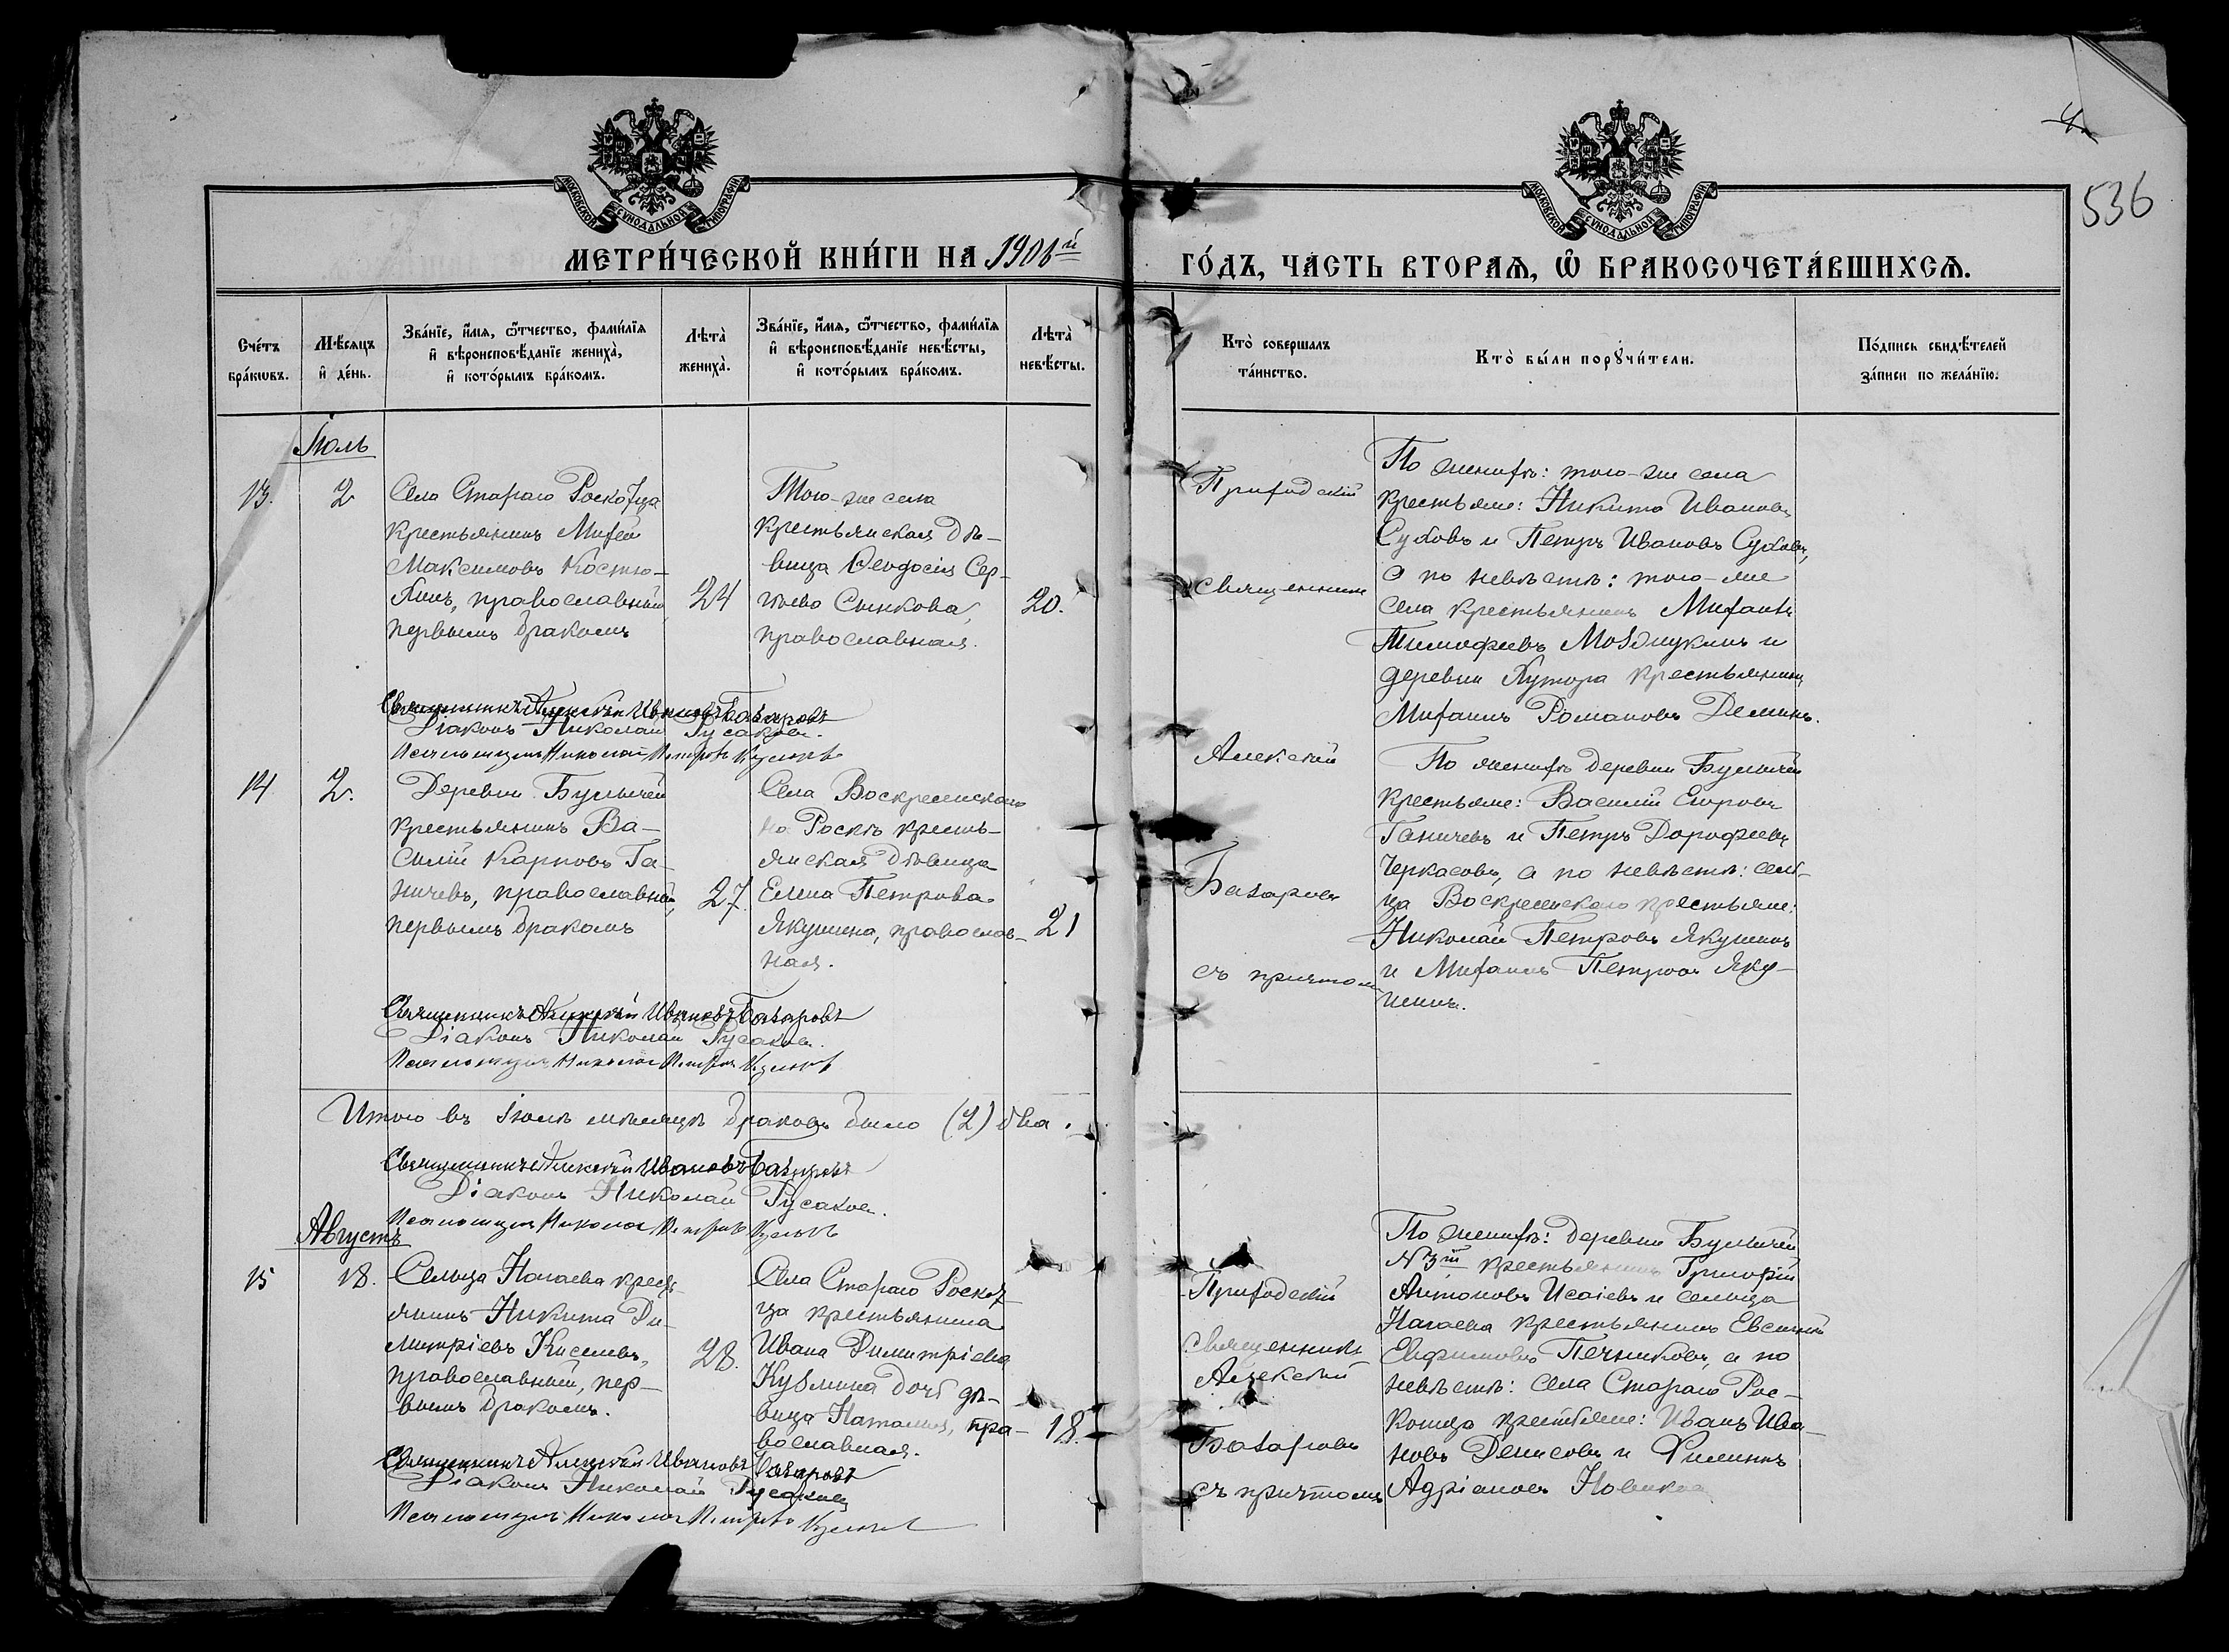 536
МОСКОВСКОЙ СУНОДАЛЬНОЙ ТИПОГРАФІИ
МОСКОВСКОЙ СУНОДАЛЬНОЙ ТИПОГРАФІИ
МЕТРИ́ЧЕСКОЙ КНИ́ГИ НА 1906й
ГО́ДЪ, ЧА́СТЬ ВТОРАѦ, Ѡ҆ БРАКОСОЧЕТА́ВШИХСѦ.
Сче́тъ бра́кѡвъ.
Мѣ́сѧцъ и҆ де́нь.
Зва́нїе, и҆́мѧ, ѻ҆́тчество, фами́лїѧ
и҆ вѣроисповѣ́данїе жениха̀,
и҆ кото́рымъ бра́комъ.
Лѣта̀ жениха̀.
Зва́нїе, и҆́мѧ, ѻ҆́тчество, фами́лїѧ
и҆ вѣроисповѣ́данїе невѣ́сты,
и҆ кото́рымъ бра́комъ.
Лѣта̀ невѣ́сты.
Кто̀ совершалъ
та́инство.
Кто̀ бы́ли порꙋчи́тели.
По́дпись свидѣ́телей
за́писи по жела́нїю.
Іюль
13.
2
Села Стараго Роскотца
крестьянинъ Михей
Максимовъ Костю-
православный
первымъ бракомъ
24
Того-же села
крестьянская дѣ-
вица Ѳеодосія Сер-
гѣева Сынкова,
православная.
20.
Приходскій
священникъ
Алексій
Базаровъ
съ причтомъ
По женихѣ: того-же села
крестьяне: Никита Ивановъ
Суховъ и Петръ Ивановъ Суховъ,
а по невѣстѣ: того-же
села крестьянинъ Михаилъ
Тимофеевъ Мозжукинъ и
деревни Хутора крестьянинъ
Михаилъ Романовъ Деминъ.
Священникъ Алексѣй Ивановъ Базаровъ
Діаконъ Николай Гусаковъ.
Псаломщикъ Николай Петровъ
14
2.
Деревни Булычей
крестьянинъ Ва-
силій Карповъ Га-
ничевъ, православный,
первымъ бракомъ
27.
Села Воскресенскаго
на Роскѣ кресть-
янская дѣвица
Елена Петрова
Якушина, православ-
ная.
21
По женихѣ деревни Булычей
крестьяне: Василій Егоровъ
Ганичевъ и Петръ Дорофеевъ
Черкасовъ, а по невѣстѣ: сель-
ца Воскресенскаго крестьяне:
Николай Петровъ Якушинъ
и Михаилъ Петровъ Яку-
шинъ.
Священникъ Алексѣй Ивановъ Базаровъ
Діаконъ Николай Гусаковъ.
Псаломщикъ Николай Петровъ
Итого въ Іюлѣ мѣсяцѣ браковъ было (2) два.
Священникъ Алексѣй Ивановъ Базаровъ
Діаконъ Николай Гусаковъ.
Псаломщикъ Николай Петровъ
Августъ
15
18.
Сельца Нагаева крест-
янинъ Никита Ди-
митріевъ Киселевъ,
православный, пер-
вымъ бракомъ.
28.
Села Стараго Роскот-
ца крестьянина
Ивана Димитріева
Кузмина дочь дѣ-
вица Наталия, пра-
вославная.
18.
Приходскій
священникъ
Алексій
Базаровъ
съ причтомъ
По женихѣ: деревни Булычей
№ 3й крестьянинъ Григорій
Антоновъ Исаіевъ и сельца
Нагаева крестьянинъ Евсигній
Евфимовъ Печниковъ, а по
невѣстѣ: села Стараго Рос-
котца крестьяне: Иванъ Ива-
новъ Денисовъ и Филиппъ
Адріановъ Новиковъ
Священникъ Алексѣй Ивановъ Базаровъ
Діаконъ Николай Гусаковъ
Псаломщикъ Николай Петровъ